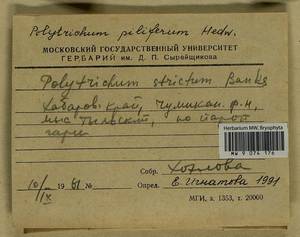 Polytrichum piliferum Hedw.
МОСКОВСКИЙ ГОСУДАРСТВЕННЫЙ УНИВЕРСИТЕТ
ГЕРБАРИЙ им. Д. П. Сырейщикова
Polytrichum strictum Banks
Хабаров. край, Чумикан. р-н,
мыс Тыльский, по старой
гари
Herbarium MW, Bryophyta
MW 9 074 176
Собр. Хохлова
10/IX 1961 Опред. Е. Игнатова 1991
МГИ, з. 1353, т. 20000